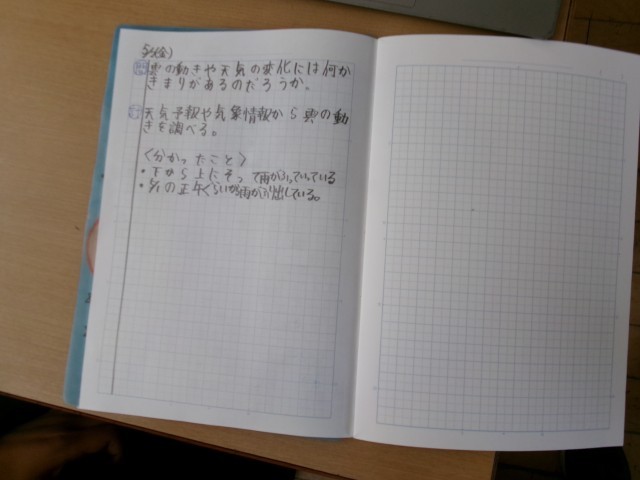 雲の動きや天気の変化には何か
きまりがあるのだろうか。
天気予報や気象情報から雲の動
きを調べる。
〈分かったこと〉
・下から上にそって雨がふっていっている
・の正午くらいが雨がふ出している。